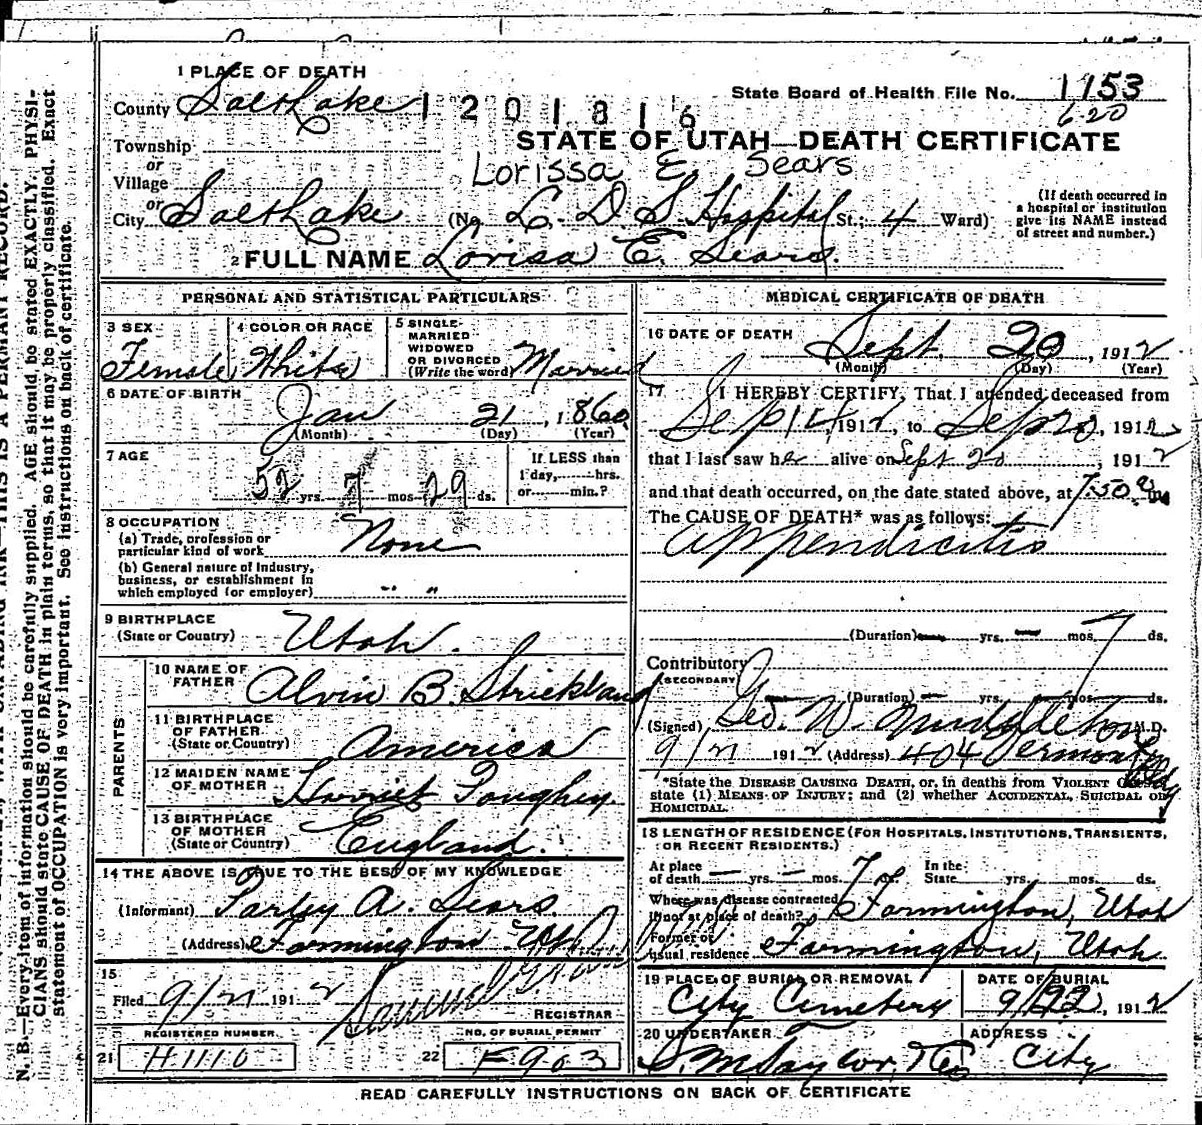 1 PLACE OF DEATH
County Salt Lake 1201816
State Board of Health File No. 1153
620
Township
STATE OF UTAH—DEATH CERTIFICATE
or
Village
Lorissa E Sears
or
City Salt Lake (No. L. D. S Hospital St.; 4 Ward)
(If death occurred in a hospital or institution give its NAME instead of street and number.)
2 FULL NAME Lorisa E. Sears
PERSONAL AND STATISTICAL PARTICULARS
3 SEX Female
4 COLOR OR RACE White
5 SINGLE- MARRIED- WIDOWED OR DIVORCED (Write the word) Married
6 DATE OF BIRTH
Jan 21, 1860
(Month) (Day) (Year)
7 AGE
52 yrs. 7 mos 29 ds.
If LESS than
1 day, hrs.
or min.?
8 OCCUPATION
(a) Trade, profession or
particular kind of work None
(b) General nature of industry,
business, or establishment in
which employed (or employer) " "
9 BIRTHPLACE
(State or Country) Utah.
PARENTS
10 NAME OF FATHER Alvin B. Strickland
11 BIRTHPLACE OF FATHER (State or Country) America
12 MAIDEN NAME OF MOTHER Harriet
13 BIRTHPLACE OF MOTHER (State or Country) England.
14 THE ABOVE IS TRUE TO THE BEST OF MY KNOWLEDGE
(Informant) Parley A. Sears.
(Address) Farmington Utah
15
Filed 9/21 1912 Samuel
REGISTRAR
REGISTERED NUMBER NO. OF BURIAL PERMIT
21 H1110 22 F903
MEDICAL CERTIFICATE OF DEATH
16 DATE OF DEATH
Sept. 20, 1912
(Month) (Day) (Year)
17 I HEREBY CERTIFY, That I attended deceased from
Sep 14 1912, to Sep 20, 1912
that I last saw her alive on Sept 20, 1912
and that death occurred, on the date stated above, at 7.50 a m
The CAUSE OF DEATH* was as follows:
appendicitis
(Duration) — yrs. — mos. 7 ds.
Contributory
(SECONDARY)
(Duration) — yrs. — mos. — ds.
(Signed) Geo. W. Middleton M.D.
9/21 1912 (Address) 404 Vermont Bldg
*State the DISEASE CAUSING DEATH, or, in deaths from VIOLENT CAUSES
state (1) MEANS OF INJURY; and (2) whether ACCIDENTAL, SUICIDAL OR
HOMICIDAL.
18 LENGTH OF RESIDENCE (FOR HOSPITALS, INSTITUTIONS, TRANSIENTS,
OR RECENT RESIDENTS.)
At place of death — yrs. — mos. 7 ds. In the State yrs. mos. ds.
Where was disease contracted
if not at place of death? Farmington, Utah
Former or
usual residence Farmington, Utah
19 PLACE OF BURIAL OR REMOVAL DATE OF BURIAL
City Cemetery 9/22, 1912
20 UNDERTAKER ADDRESS
S. M Taylor, & Co City
READ CAREFULLY INSTRUCTIONS ON BACK OF CERTIFICATE
N. B.—Every item of information should be carefully supplied. AGE should be stated EXACTLY. PHYSI-
CIANS should state CAUSE OF DEATH in plain terms, so that it may be properly classified. Exact
statement of OCCUPATION is very important. See instructions on back of certificate.